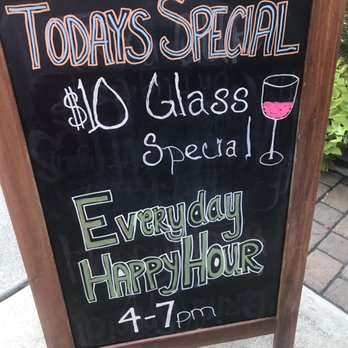 TODAYS SPECIAL
$10 Glass
Special
Everyday
HAPPY HOUR
4-7pm